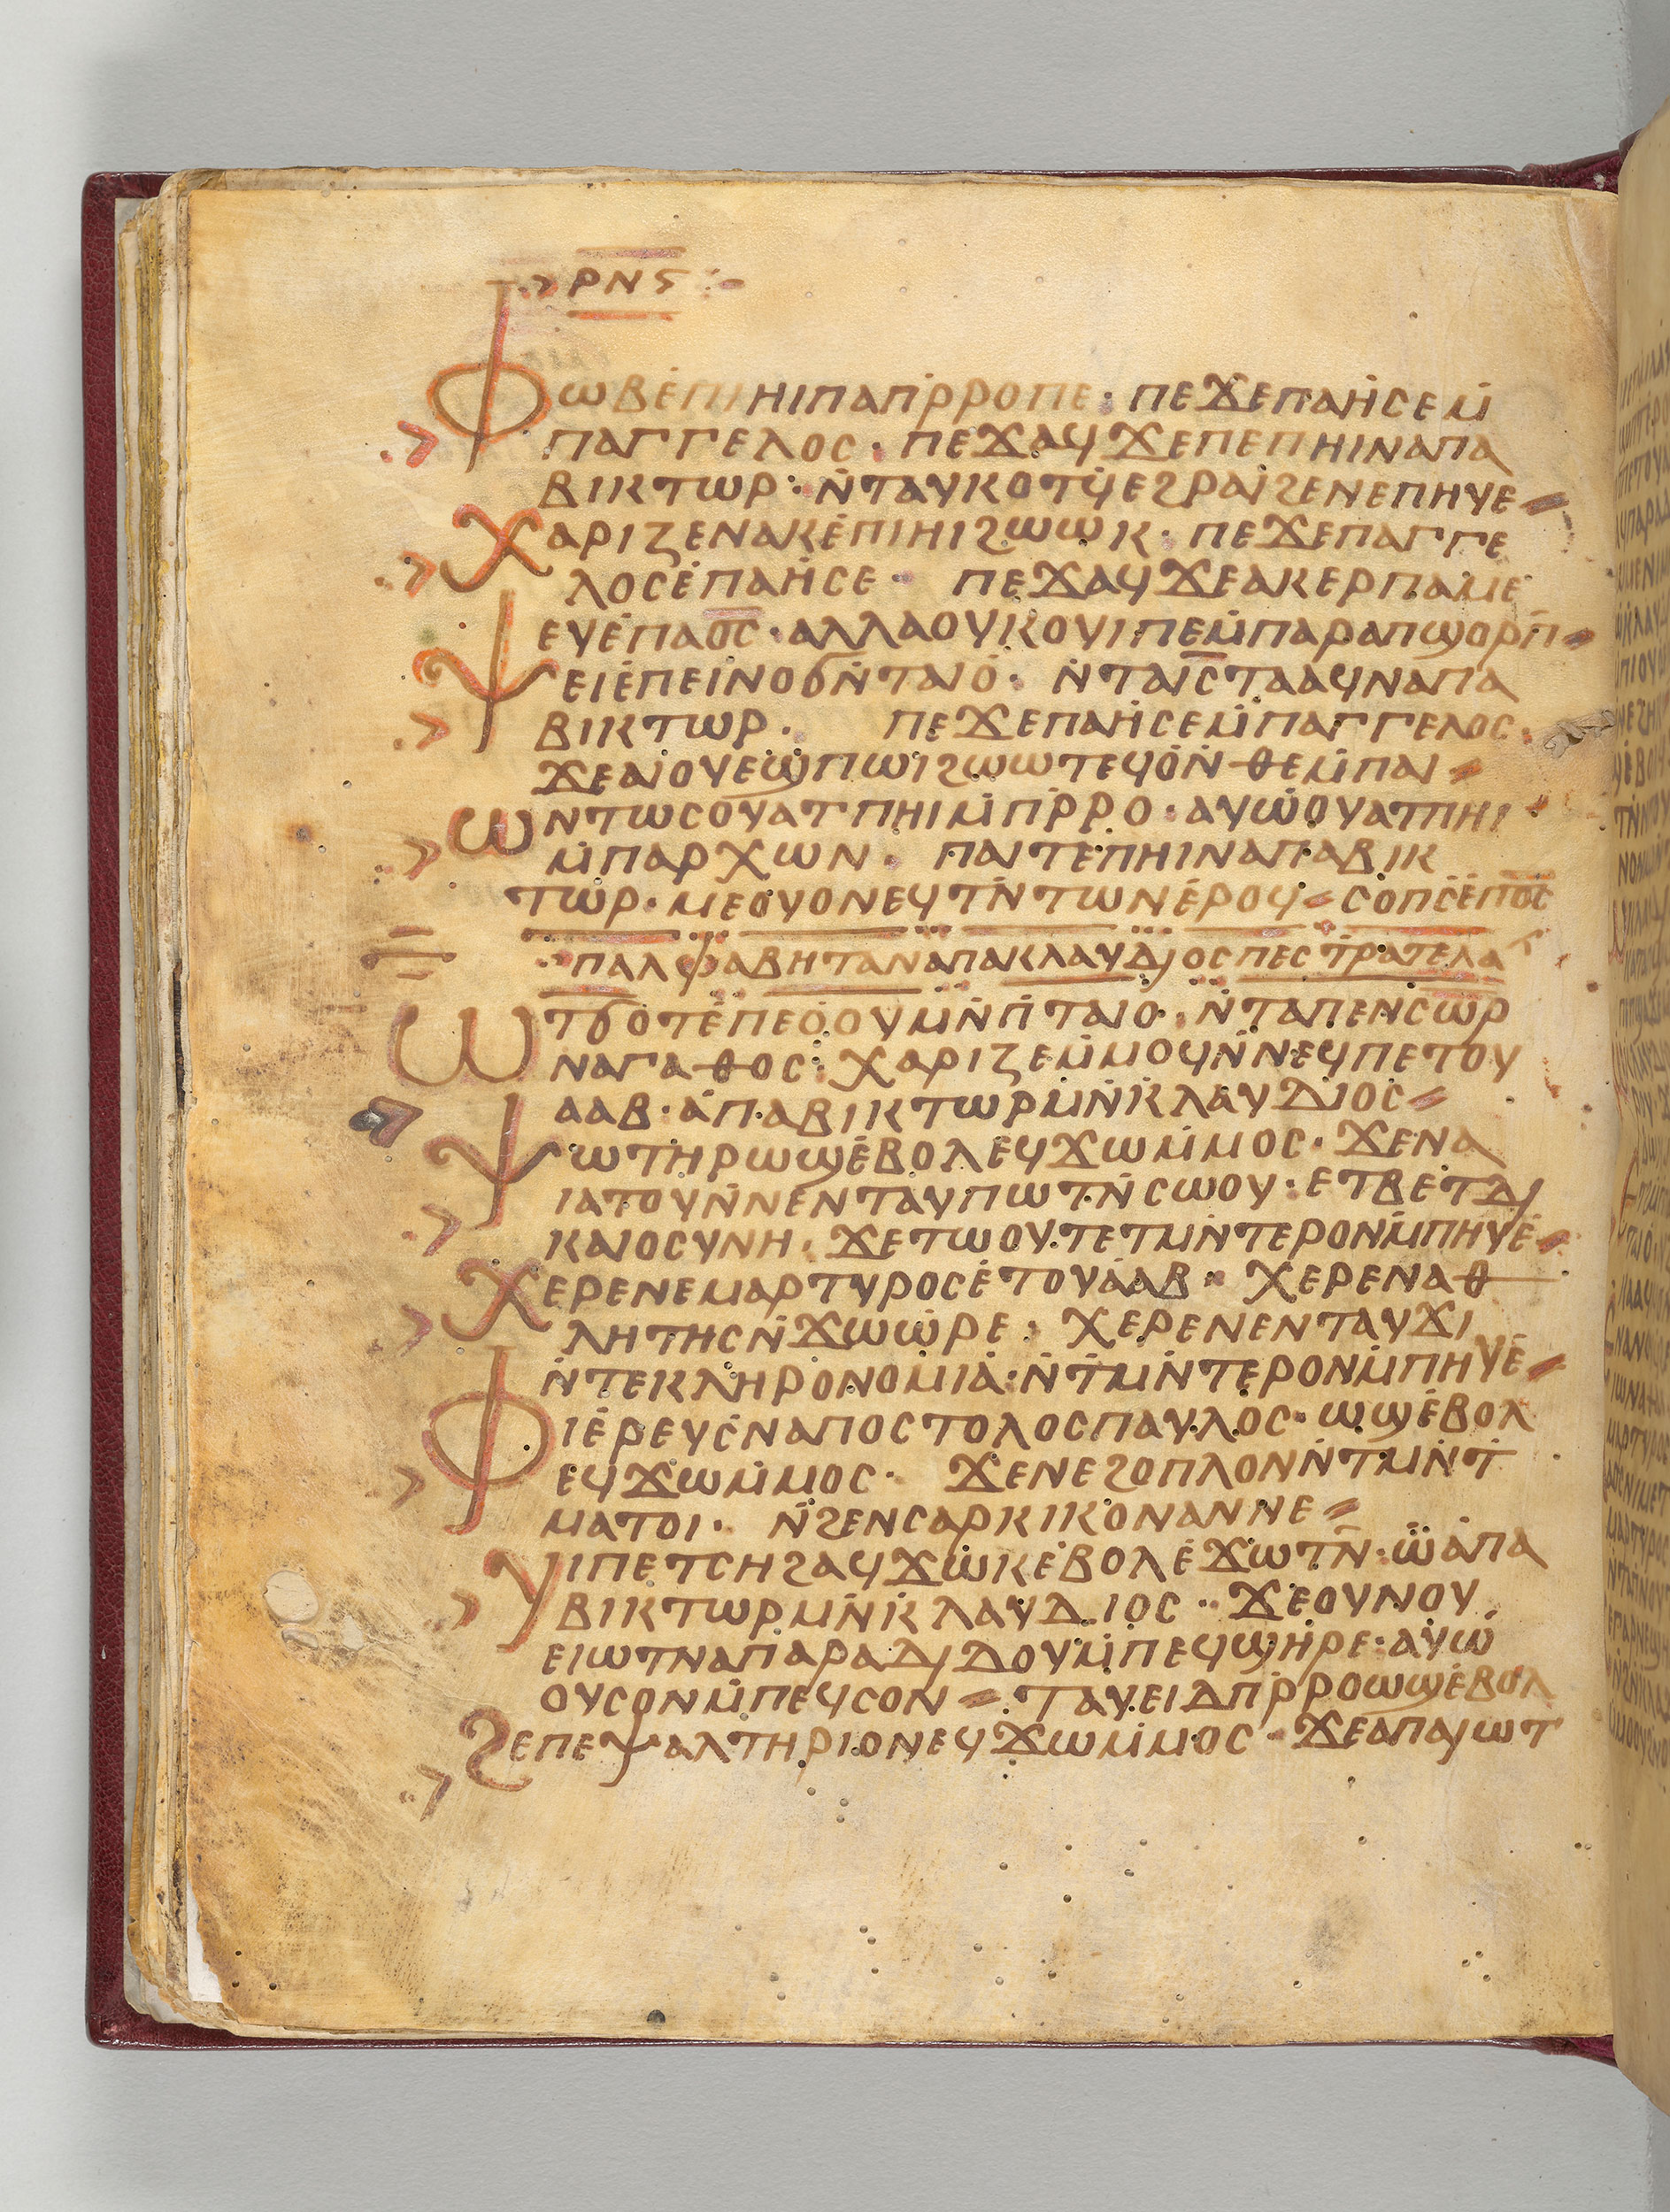 ⲣⲛⲋ
ⲫⲱⲃⲉⲡⲓⲏⲓⲡⲁⲡⲣⲣⲟⲡⲉ· ⲡⲉϫⲉⲡⲁⲏⲥⲉⲙ̄
ⲡⲁⲅⲅⲉⲗⲟⲥ· ⲡⲉϫⲁϥϫⲉⲡⲉⲡⲏⲓⲛⲁⲡⲁ
ⲃⲓⲕⲧⲱⲣ: ⲛ̄ⲧⲁⲩⲕⲟⲧϥ̄ⲉϩⲣⲁⲓϩⲉⲛⲉⲡⲏⲩⲉ
ⲭⲁⲣⲓⲍⲉⲛⲁⲕⲉⲡⲓⲏⲓϩⲱⲱⲕ· ⲡⲉϫⲉⲡⲁⲅⲅⲉ
ⲗⲟⲥⲉⲡⲁⲏⲥⲉ· ⲡⲉϫⲁϥϫⲉⲁⲕⲉⲣⲡⲁⲙⲉ
ⲉⲩⲉⲡⲁⲟ̅ⲥ̅· ⲁⲗⲗⲁⲟⲩⲕⲟⲩⲓⲡⲉⲙ̄ⲡⲁⲣⲁⲡϣⲟⲣⲡ̄
ⲯⲉⲓⲉⲡⲉⲓⲛⲟϭⲛ̄ⲧⲁⲓⲟ· ⲛ̄ⲧⲁⲓ̅ⲥ̅ⲧⲁⲁϥⲛⲁⲡⲁ
ⲃⲓⲕⲧⲱⲣ· ⲡⲉϫⲉⲡⲁⲏⲥⲉⲙ̄ⲡⲁⲅⲅⲉⲗⲟⲥ·
ϫⲉⲁⲓⲟⲩⲉϣⲡⲱⲓϩⲱⲱⲧⲉϥⲟⲛ̄ⲑⲉⲙ̄ⲡⲁⲓ
ⲱⲛⲧⲱⲥⲟⲩⲁⲧⲡⲏⲓⲙ̄ⲡⲣ̄ⲣⲟ· ⲁⲩⲱⲟⲩⲁⲧⲡⲏⲓ
ⲙ̄ⲡⲁⲣⲭⲱⲛ· ⲡⲁⲓⲧⲉⲡⲏⲓⲛⲁⲡⲁⲃⲓⲕ
ⲧⲱⲣ· ⲙⲉⲟⲩⲟⲛⲉϥⲧⲛ̄ⲧⲱⲛⲉⲣⲟϥ ⲥⲟⲡⲥⲉⲡⲟ̅ⲥ̅
ⲡⲁⲗⲫⲁⲃⲏⲧⲁⲛⲁⲡⲁⲕⲗⲁⲩⲇⲓⲟⲥⲡⲉⲥⲧⲣⲁⲧⲉⲗⲁⲧ
ⲱⲧϭⲟⲧⲉⲡⲉⲟⲟⲩⲙⲛ̄ⲡ̄ⲧⲁⲓⲟ· ⲛ̄ⲧⲁⲡⲉⲛⲥⲱⲣ
ⲛⲁⲅⲁⲑⲟⲥ: ⲭⲁⲣⲓⲍⲉⲙ̄ⲙⲟϥⲛ̄ⲛⲉϥⲡⲉⲧⲟⲩ
ⲁⲁⲃ· ⲁⲡⲁⲃⲓⲕⲧⲱⲣⲙⲛ̄ⲕⲗⲁⲩⲇⲓⲟⲥ
ⲯⲱⲧⲏⲣⲱϣⲉⲃⲟⲗⲉϥϫⲱⲙ̄ⲙⲟⲥ· ϫⲉⲛⲁ
ⲓⲁⲧⲟⲩⲛ̄ⲛⲉⲛⲧⲁⲩⲡⲱⲧⲛ̄ⲥⲱⲟⲩ· ⲉⲧⲃⲉⲧⲇⲓ
ⲕⲁⲓⲟⲥⲩⲛⲏ· ϫⲉⲧⲱⲟⲩⲧⲉⲧⲙⲛ̄ⲧⲉⲣⲟⲛⲙ̄ⲡⲏⲩⲉ
ⲭⲉⲣⲉⲛⲉⲙⲁⲣⲧⲩⲣⲟⲥⲉⲧⲟⲩⲁⲁⲃ· ⲭⲉⲣⲉⲛⲁⲑ
ⲗⲏⲧⲏⲥⲛ̄ϫⲱⲱⲣⲉ· ⲭⲉⲣⲉⲛⲉⲛⲧⲁⲩϫⲓ
ⲛ̄ⲧⲉⲕⲗⲏⲣⲟⲛⲟⲙⲓⲁ· ⲛ̄ⲧⲙⲛ̄ⲧⲉⲣⲟⲛⲙ̄ⲡⲏⲩⲉ
ⲫⲓⲉⲣⲉⲩⲥⲛⲁⲡⲟⲥⲧⲟⲗⲟⲥⲡⲁⲩⲗⲟⲥ· ⲱϣⲉⲃⲟⲗ
ⲉϥϫⲱⲙ̄ⲙⲟⲥ· ϫⲉⲛⲉϩⲟⲡⲗⲟⲛⲛ̄ⲧⲙⲛ̄ⲧ
ⲙⲁⲧⲟⲓ· ⲛ̄ϩⲉⲛⲥⲁⲣⲕⲓⲕⲟⲛⲁⲛⲛⲉ
ⲩⲓⲡⲉⲧⲥⲏϩⲁϥϫⲱⲕⲉⲃⲟⲗⲉϫⲱⲧⲛ̄· ⲱ̈ⲁⲡⲁ
ⲃⲓⲕⲧⲱⲣⲙⲛ̄ⲕⲗⲁⲩⲇⲓⲟⲥ· ϫⲉⲟⲩⲛⲟⲩ
ⲉⲓⲱⲧⲛⲁⲡⲁⲣⲁⲇⲓⲇⲟⲩⲙ̄ⲡⲉϥϣⲏⲣⲉ· ⲁⲩⲱ
ⲟⲩⲥⲟⲛⲙ̄ⲡⲉϥⲥⲟⲛ ⲧⲁⲩⲉⲓⲇⲡⲣ̄ⲣⲟⲱϣⲉⲃⲟⲗ
ϩⲉⲡⲉⲯⲁⲗⲧⲏⲣⲓⲟⲛⲉϥϫⲱⲙ̄ⲙⲟⲥ· ϫⲉⲁⲡⲁⲓⲱⲧ